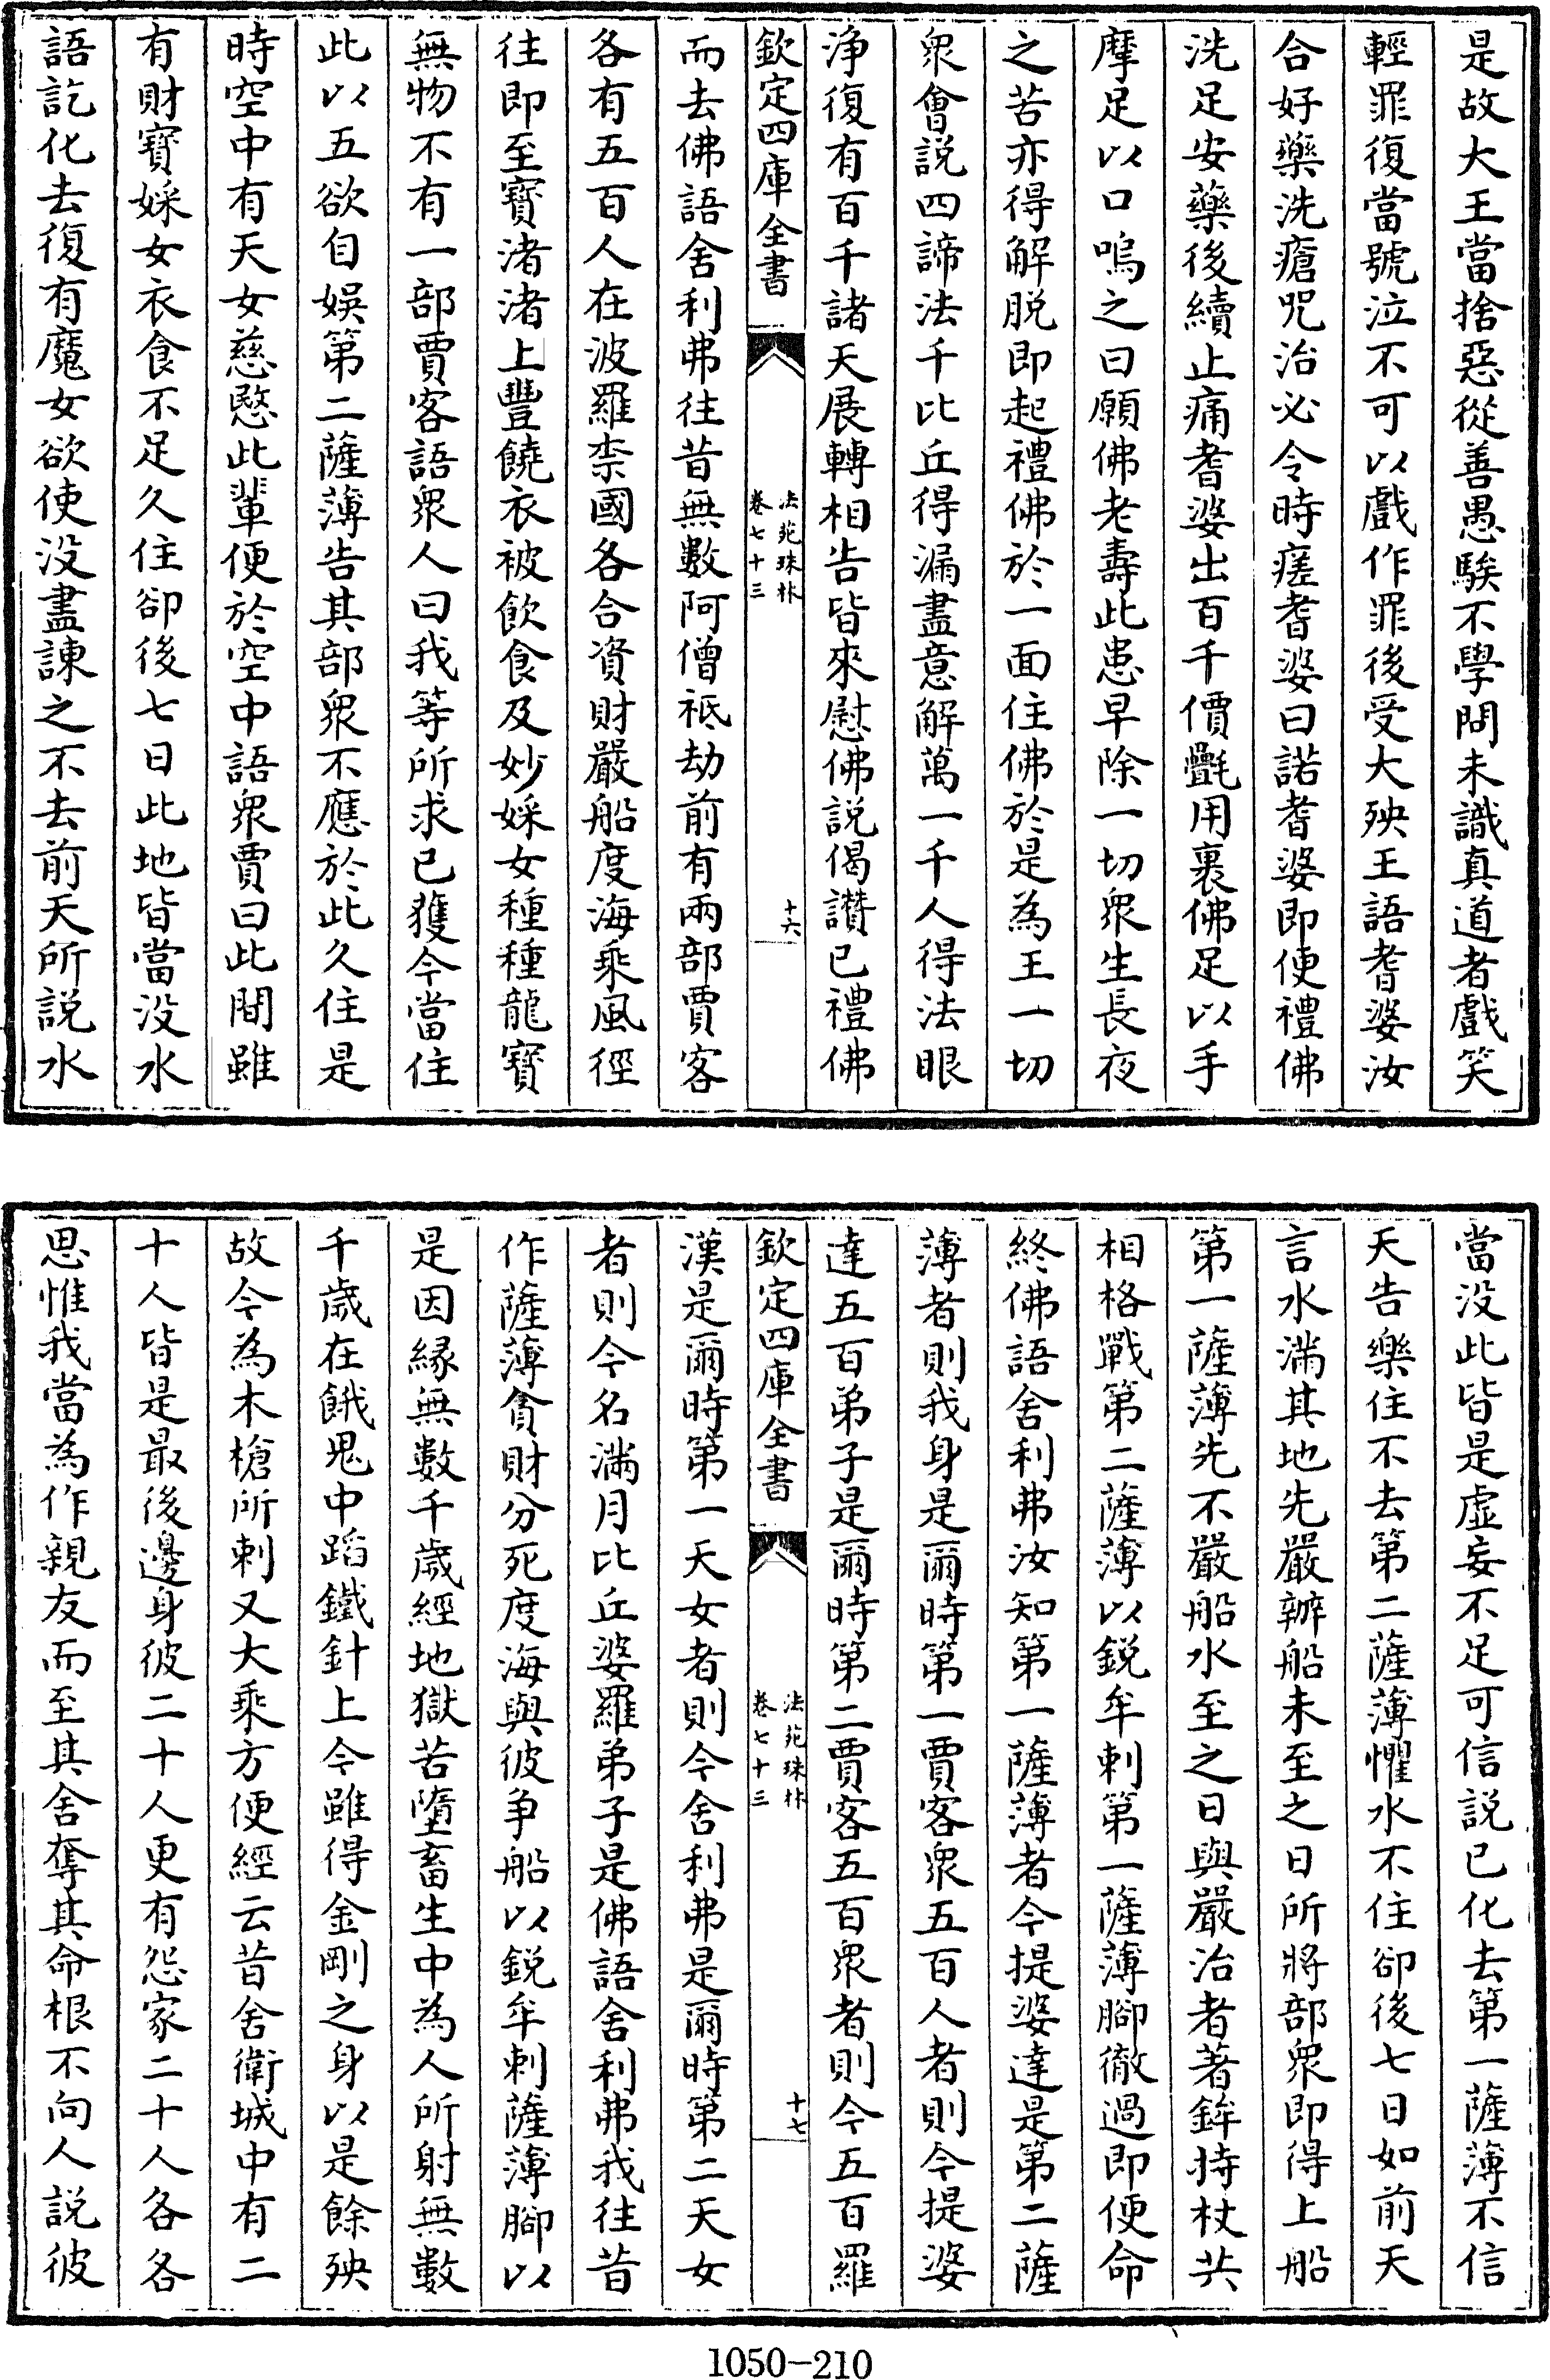 是故大王當捨惡從善愚騃不學問未識真道者戲笑
輕罪復當號泣不可以戲作罪後受大殃王語耆婆汝
合好藥洗瘡咒治必令時瘥耆婆曰諾耆婆即便禮佛
洗足安藥後續止痛耆婆出百千價㲲用裹佛足以手
摩足以口嗚之曰願佛老壽此患早除一切衆生長夜
之苦亦得解脱即起禮佛於一面住佛於是為王一切
衆會説四諦法千比丘得漏盡意解萬一千人得法眼
浄復有百千諸天展轉相告皆來慰佛説偈讚已禮佛
欽定四庫全書
法苑珠林
卷七十三
十六
而去佛語舍利弗往昔無數阿僧祗劫前有兩部賈客
各有五百人在波羅柰國各合資財嚴船度海乘風徑
往即至寶渚渚上豐饒衣被飲食及妙婇女種種龍寶
無物不有一部賈客語衆人曰我等所求已獲今當住
此以五欲自娛第二薩薄告其部衆不應於此久住是
時空中有天女慈愍此輩便於空中語衆賈曰此間雖
有財寶婇女衣食不足久住卻後七日此地皆當没水
語訖化去復有魔女欲使没盡諫之不去前天所説水
當没此皆是虛妄不足可信説已化去第一薩薄不信
天告樂住不去第二薩薄懼水不住卻後七日如前天
言水滿其地先嚴辦船未至之日所將部衆即得上船
第一薩薄先不嚴船水至之日與嚴治者著鉾持杖共
相格戰第二薩薄以鋭牟刺第一薩薄腳徹過即便命
終佛語舍利弗汝知第一薩薄者今提婆達是第二薩
薄者則我身是爾時第一賈客衆五百人者則今提婆
達五百弟子是爾時第二賈客五百衆者則今五百羅
欽定四庫全書
法苑珠林
卷七十三
十七
漢是爾時第一天女者則今舍利弗是爾時第二天女
者則今名滿月比丘婆羅弟子是佛語舍利弗我往昔
作薩薄貪財分死度海與彼争船以鋭牟刺薩薄腳以
是因緣無數千歲經地獄苦墮畜生中為人所射無數
千歲在餓鬼中蹈鐵針上今雖得金剛之身以是餘殃
故今為木槍所刺又大乘方便經云昔舍衛城中有二
十人皆是最後邊身彼二十人更有怨家二十人各各
思惟我當為作親友而至其舍奪其命根不向人説彼
1050-210